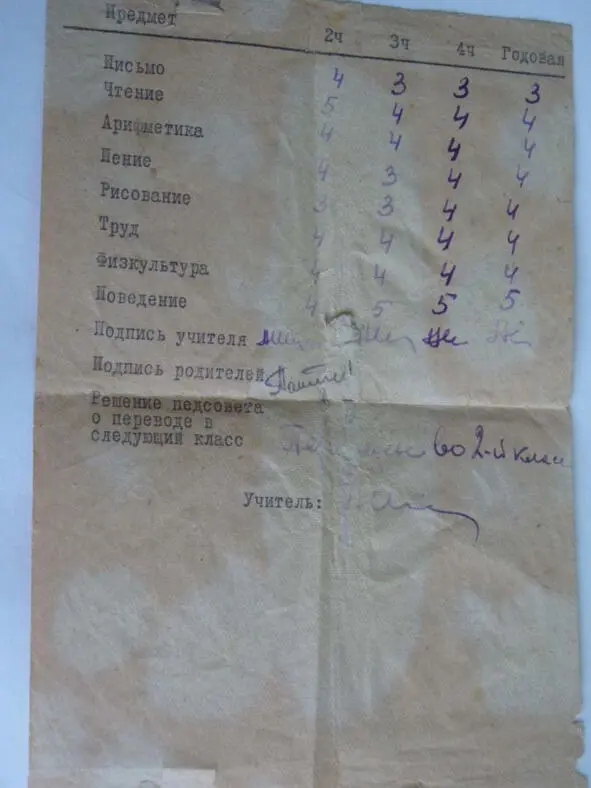 Предмет 2ч 3ч 4ч Годовая
Письмо 4 3 3 3
Чтение 5 4 4 4
Арифметика 4 4 4 4
Пение 4 3 4 4
Рисование 3 3 4 4
Труд 4 4 4 4
Физкультура 4 4 4 4
Поведение 4 5 5 5
Подпись учителя
Подпись родителей
Решение педсовета
о переводе в
следующий класс во 2-й класс
Учитель: